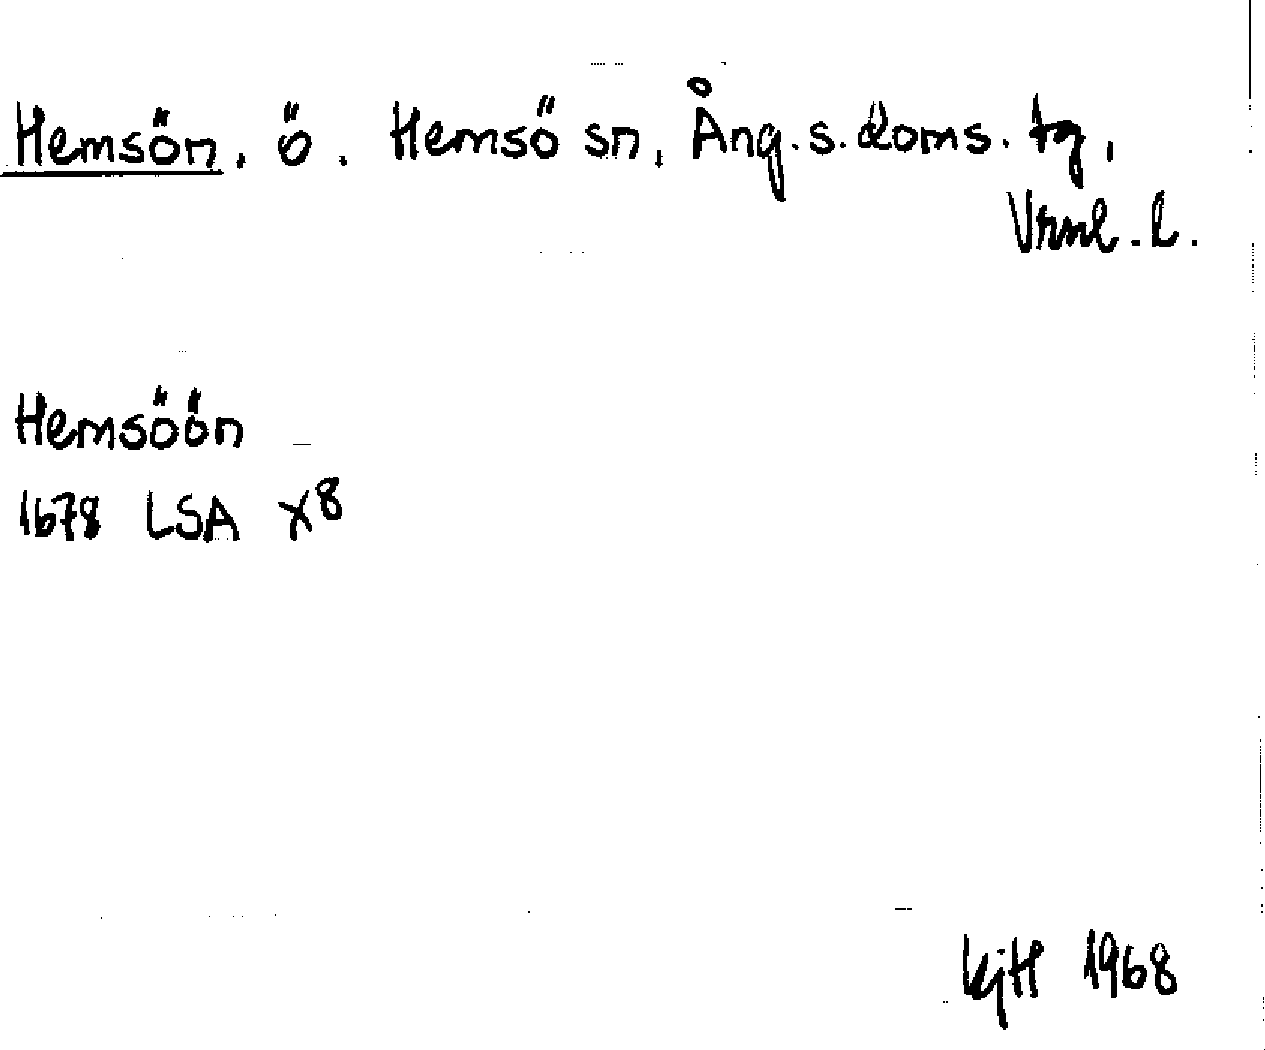 Hemsön. ö. Hemsö sn, Ång. s. doms. tg,
Vrnl. l.
Hemsöön
1678 LSA X8
KjH 1968